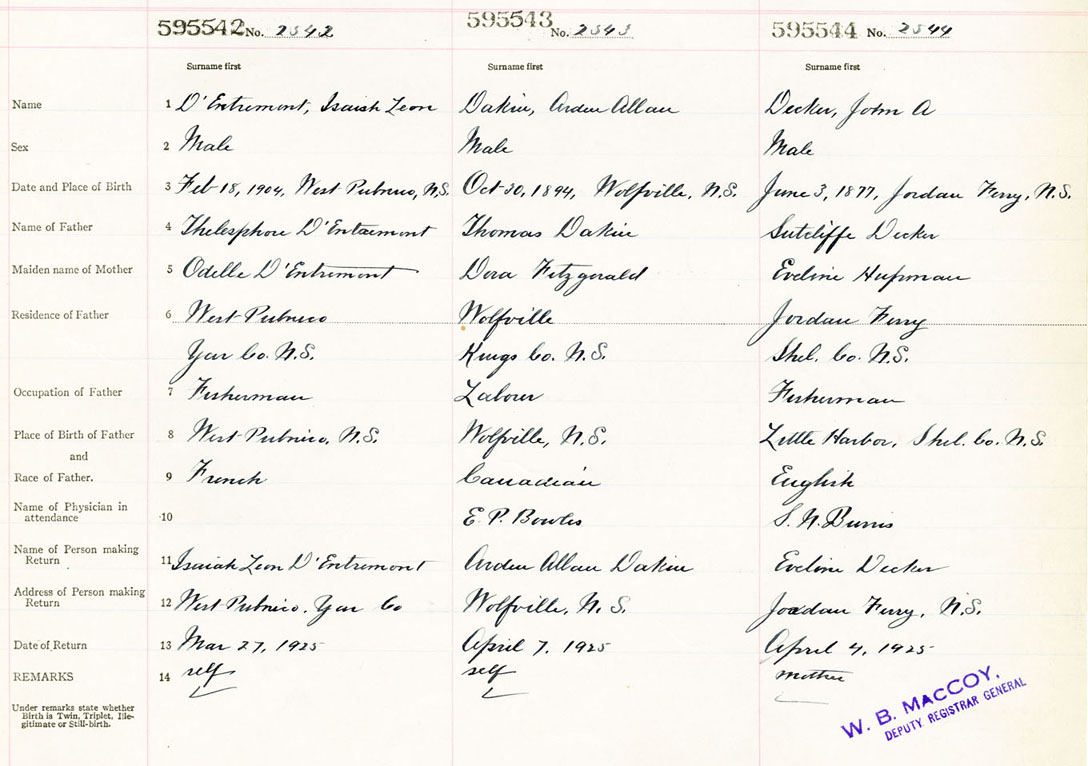 595542 No. 2542 595543 No. 2543 595544 No. 2544
Surname first Surname first Surname first
Name 1 D'Entremont, Isaiah Leon Dakin, Arden Allan Decker, John A
Sex 2 Male Male Male
Date and Place of Birth 3 Feb 18, 1904, West Pubnico, N.S. Oct 30, 1894, Wolfville, N.S. June 3, 1877, Jordan Ferry, N.S.
Name of Father 4 Thelesphore D'Entremont Thomas Dakin Sutcliffe Decker
Maiden name of Mother 5 Odelle D'Entremont Dora Fitzgerald Eveline Hupman
Residence of Father 6 West Pubnico Wolfville Jordan Ferry
Yar Co. N.S. Kings Co. N.S. Shel. Co. N.S.
Occupation of Father 7 Fisherman Labour Fisherman
Place of Birth of Father 8 West Pubnico, N.S. Wolfville, N.S. Little Harbor, Shel. Co. N.S.
and
Race of Father. 9 French Canadian English
Name of Physician in
attendance 10 E. P. Bowles S. N. Burns
Name of Person making
Return 11 Isaiah Leon D'Entremont Arden Allan Dakin Eveline Decker
Address of Person making
Return 12 West Pubnico, Yar Co Wolfville, N.S. Jordan Ferry, N.S.
Date of Return 13 Mar 27, 1925 April 7, 1925 April 4, 1925
REMARKS 14 self self mother
Under remarks state whether
Birth is Twin, Triplet, Ille-
gitimate or Still-birth.
W. B. MacCOY,
DEPUTY REGISTRAR GENERAL